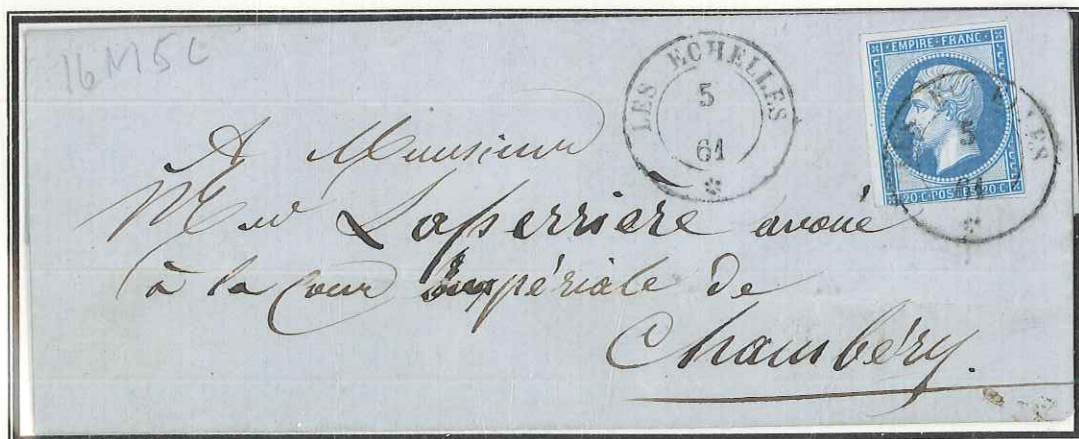 16M5C
LES ECHELLES
5
61
EMPIRE FRANC
20 C POSTES 20 C
LES ECHELLES
5
61
A Monsieur
Laperriere avoué
à la Cour Impériale de
Chambéry.